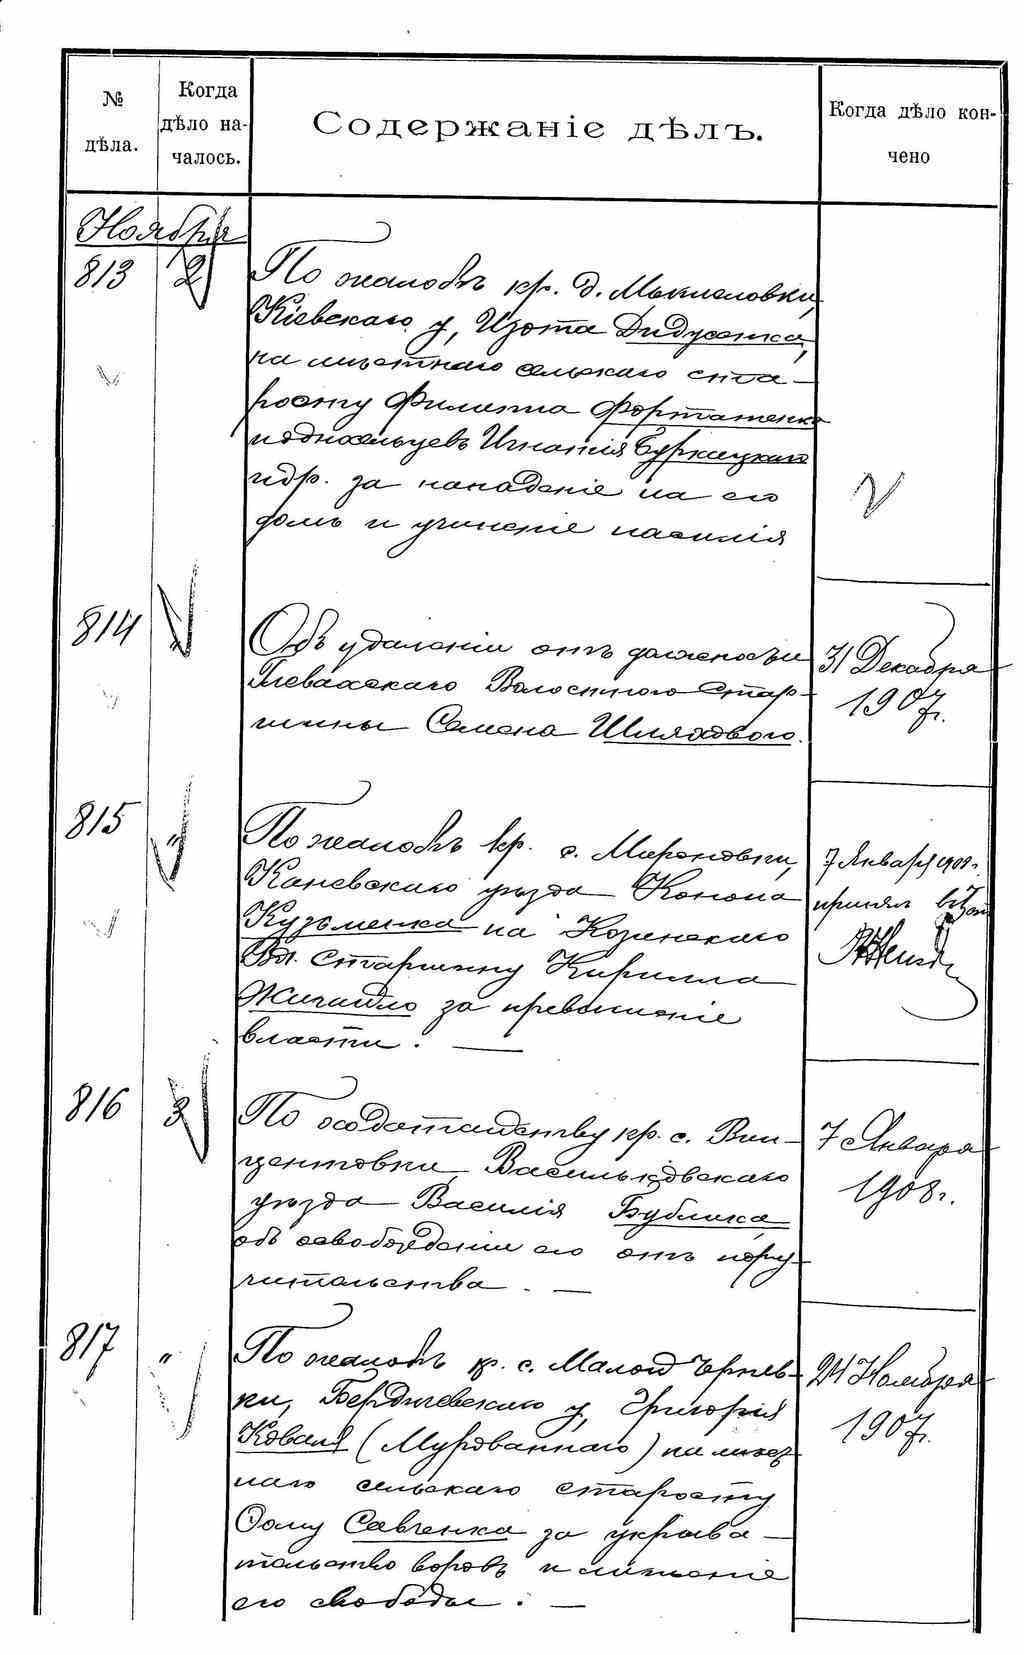 № дѣла.
Когда дѣло на-
чалось.
Содержаніе дѣлъ.
Когда дѣло кон-
чено
Ноября
813
2
По жалобѣ кр. д. Мыгаловки,
Кіевскаго у, Изота Дидусенка,
на мѣстнаго сельскаго ста-
росту Филиппа Форташенко
и односельцевъ Игнатія Буркацкаго
и др. за нападеніе на его
домъ и учиненіе насилія
814
"
Объ удаленіи отъ должности
Глевахскаго Волостного Стар-
шины Семена Шляхового.
31 Декабря
1907 г.
815
"
По жалобѣ кр. с. Мироновки,
Каневскаго уѣзда Конона
Кузьменка на Козинскаго
Вол. Старшину Кирилла
Жигайло за превышеніе
власти. —
7 Января 1908 г.
принялъ
816
3
По ходатайству кр. с. Вин-
центовки, Васильковскаго
уѣзда Василія Бублика,
объ освобожденіи его отъ пору-
чительства. —
7 Января
1908 г.
817
"
По жалобѣ кр. с. Малой Черняв-
ки, Бердичевскаго у, Григорія
Коваля (Мурованнаго) на мѣст-
наго сельскаго старосту
Ѳому Савченка за укрыва-
тельство воровъ и лишеніе
его свободы. —
24 Ноября
1907 г.